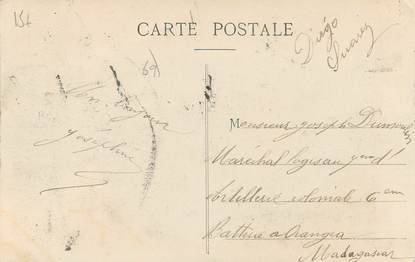 15+
CARTE POSTALE
Diégo
Suarez
69
Un bonjour
Joséphine
Monsieur Joseph
Maréchal logis au d'
artillerie coloniale 6em
Batterie a
Madagascar